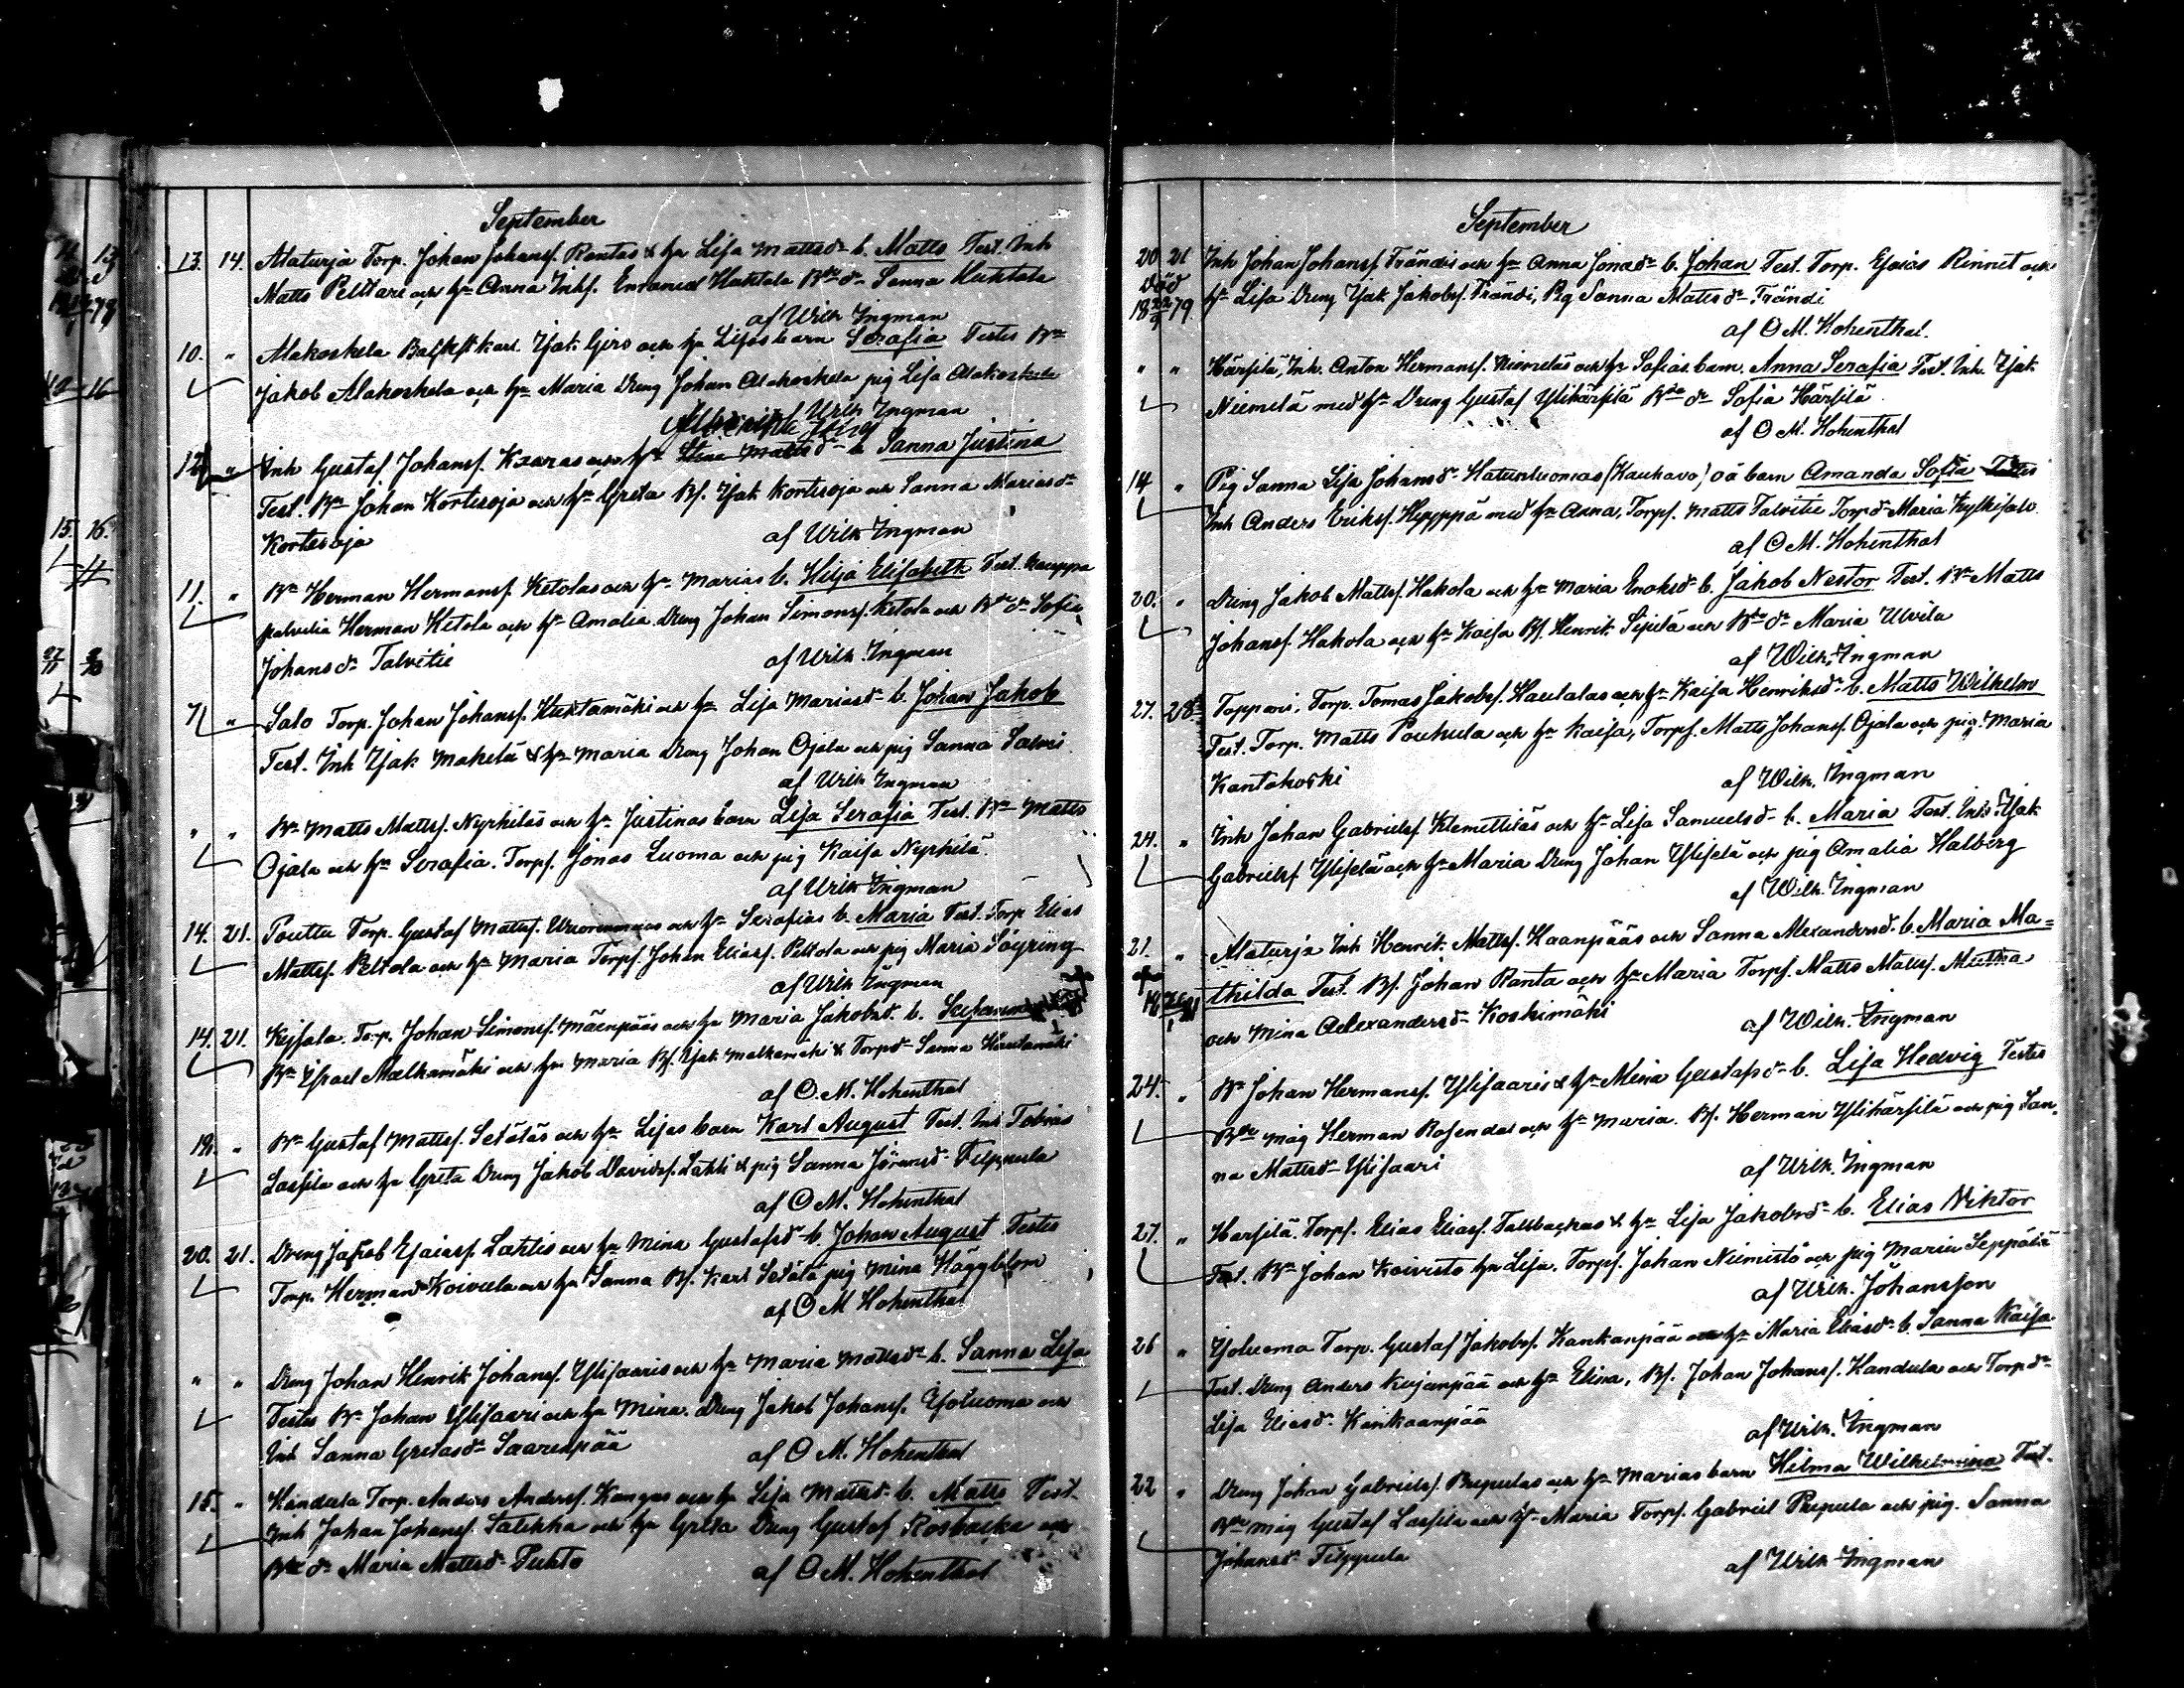 September
13. 14. Alaturja Torp. Johan Johansf. Rantas & hu Lisa Mattsdr b. Matts Test. Inh
Matts Pelttari och hu Anna Inhs. Emanuel Huhtala Bdedr Sanna Huhtala
af Wilh Ingman
10. " Alakoskela Karl. Isak Girs och hu Lisas barn Serafia Testes Bn
Jakob Alakoskela och hu Maria Dreng Johan Alakoskela pig Lisa Alakoskela
af Wilh Ingman
12 " Inh Gustaf Johansf. och hu Stina Mattsdr b Sanna Justina
Test. Bn Johan Kortesoja och hu Greta Bs. Isak Kortesoja och Sanna Mariasdr
Kortesoja af Wilh Ingman
11. " Bn Herman Hermansf. Ketolas och hu Marias b. Hilja Elisabeth Test. Kauppa
palvelia Herman Ketola och hu Amalia Dreng Johan Simonsf. Ketola och Bdedr Sofia
Johansdr Talvitie af Wilh. Ingman
7 " Salo Torp. Johan Johansf. Huhtamäki och hu Lisa Mariasdr b. Johan Jakob
Test. Inh Isak Makelä & hu Maria Dreng Johan Ojala och pig Sanna
af Wilh Ingman
" " Bn Matts Mattsf. Nyrhiläs och hu Justinas barn Lisa Serafia Test. Bn Matts
Ojala och hu Serafia. Torpf. Jonas Luoma och pig Kaisa Nyrhilä.
af Wilh Ingman
14. 21. Pouttu Torp. Gustaf Mattsf. och hu Serafias b. Maria Test. Torp Elias
Mattsf. Peltola och hu Maria Torpf. Johan Eliasf. Peltola och pig Maria Söyring
af Wilh Ingman
14. 21. Torp. Johan Simonsf. Mäenpääs och hu Maria Jakobsdr b.
Bn Israel Malkamäki och hu Maria Bs. Isak Malkamäki & Torpdr Sanna
af O. M. Hohenthal
19. " Bn Gustaf Mattsf. Setäläs och hu Lisas barn Karl August Test. Inh Tobias
Lassila och hu Greta Dreng Jakob Davidsf. Lahti & pig Sanna Filppula
af O M. Hohenthal
20. 21. Dreng Jakob Esaiasf. Lahtis och hu Mina Gustafsdr b. Johan August Testes
Torp. Herman Koivula och hu Sanna Bs. Karl Setälä pig Mina Häggblom
af O M Hohenthal
" " Dreng Johan Henrik Johansf. Ylisaaris och hu Maria Mattsdr b. Sanna Lisa
Testes Bn Johan Ylisaari och hu Mina. Dreng Jakob Johansf. Yoluoma och
Inh Sanna Gretasdr Saarenpää af O M. Hohenthal
15. " Kandula Torp. Anders Andersf. Kangas och hu Lisa Mattsdr b. Matts Test.
Inh Johan Johansf. och hu Greta Dreng Gustaf Rosbacka och
Bdedr Maria Mattsdr Puhto af O M. Hohenthal
September
20 21 Inh Johan Johansf. Frändis och hu Anna Jonasdr b. Johan Test. Torp. Esaias Rinnet och
död
18 22/9 79 hu Lisa Dreng Isak Jakobsf. Frändi, Pig Sanna Mattsdr Frändi
af O M. Hohenthal.
" " Härsilä, Inh. Anton Hermansf. Niemeläs och hu Sofias barn. Anna Serafia Test. Inh. Isak
Niemelä med hu Dreng Gustaf Ylihärsilä Bdedr Sofia Härsilä
af O M. Hohenthal
14 " Pig Sanna Lisa Johansdr (Kauhava) oä barn Amanda Sofia Testes
Inh Anders Eriksf. med hu Anna, Torpf. Matts Talvitie Torpdr Maria
af O M. Hohenthal
20. " Dreng Jakob Mattsf. Hakola och hu Maria Enoksdr b. Jakob Nestor Test. Bn Matts
Johansf. Hakola och hu Kaisa Bs. Henrik och Bdedr Maria Ulvila
af Wilh. Ingman
27. 28. Toppari, Torp. Tomas Jakobsf. Hautalas och hu Kaisa Henriksdr b. Matts Wilhelm
Test. Torp. Matts Pouhula och hu Kaisa, Torpf. Matts Johansf. Ojala och pig. Maria
Kantakoski af Wilh. Ingman
24. " Inh Johan Gabrielsf. Klemettiläs och hu Lisa Samuelsdr b. Maria Test. Inhs Isak
Gabrielsf. Yliselä och hu Maria Dreng Johan Yliselä och pig Amalia Halberg
af Wilh. Ingman
21. " Alaturja Inh Henrik Mattsf. Haanpääs och Sanna Alexandersd. b. Maria Ma=
thilda Test. Bs. Johan Ranta och hu Maria Torpf. Matts Mattsf.
och Mina Alexandersdr Koskimäki af Wilh. Ingman
24. " Bn Johan Hermansf. Ylisaaris & hu Mina Gustafsdr b. Lisa Hedvig Testes
Bde måg Herman Rosendal och hu Maria. Bs. Herman Ylihärsilä och pig San.
na Mattsdr Ylisaari af Wilh. Ingman
27. " Harsilä, Torpf. Elias Eliasf. Falsbackas & hu Lisa Jakobsdr b. Elias Viktor
Test. Bn Johan Koivisto hu Lisa. Torpf. Johan Niemistö och pig Maria Seppälä
af Wilh. Johansson
26 " Yoluoma Torp. Gustaf Jakobsf. Kankanpää och hu Maria Eliasdr b. Sanna Kaisa
Test. Dreng Anders Kujanpää och hu Elina, Bs. Johan Johansf. Kandula och Torpdr
Lisa Eliasdr. Kankaanpää af Wilh. Ingman
22 " Dreng Johan Gabrielsf. Prepulas och hu Marias barn Hilma Wilhelmina Test.
Bde måg Gustaf Lassila och hu Maria Torpf. Gabriel Prepula och pig. Sanna
Johansdr Filppula af Wilh Ingman